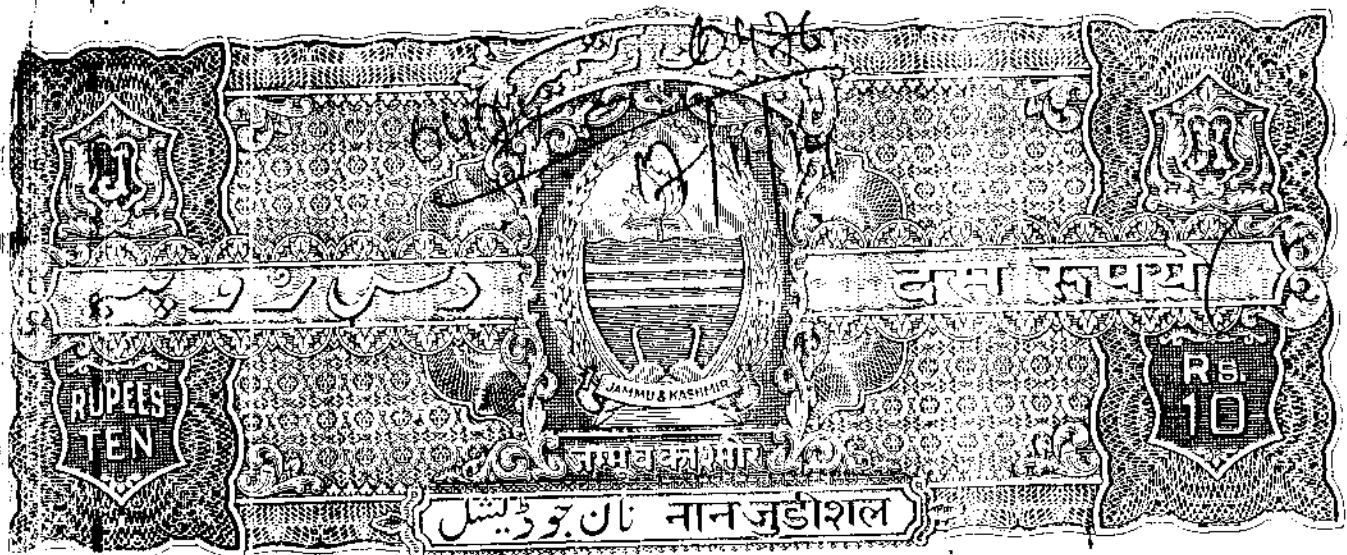 6476
دس روپیہ
दस रूपये
RUPEES
TEN
Rs.
10
JAMMU & KASHMIR
जम्मू व काश्मीर
نان جوڈیشل नान जुडीशल